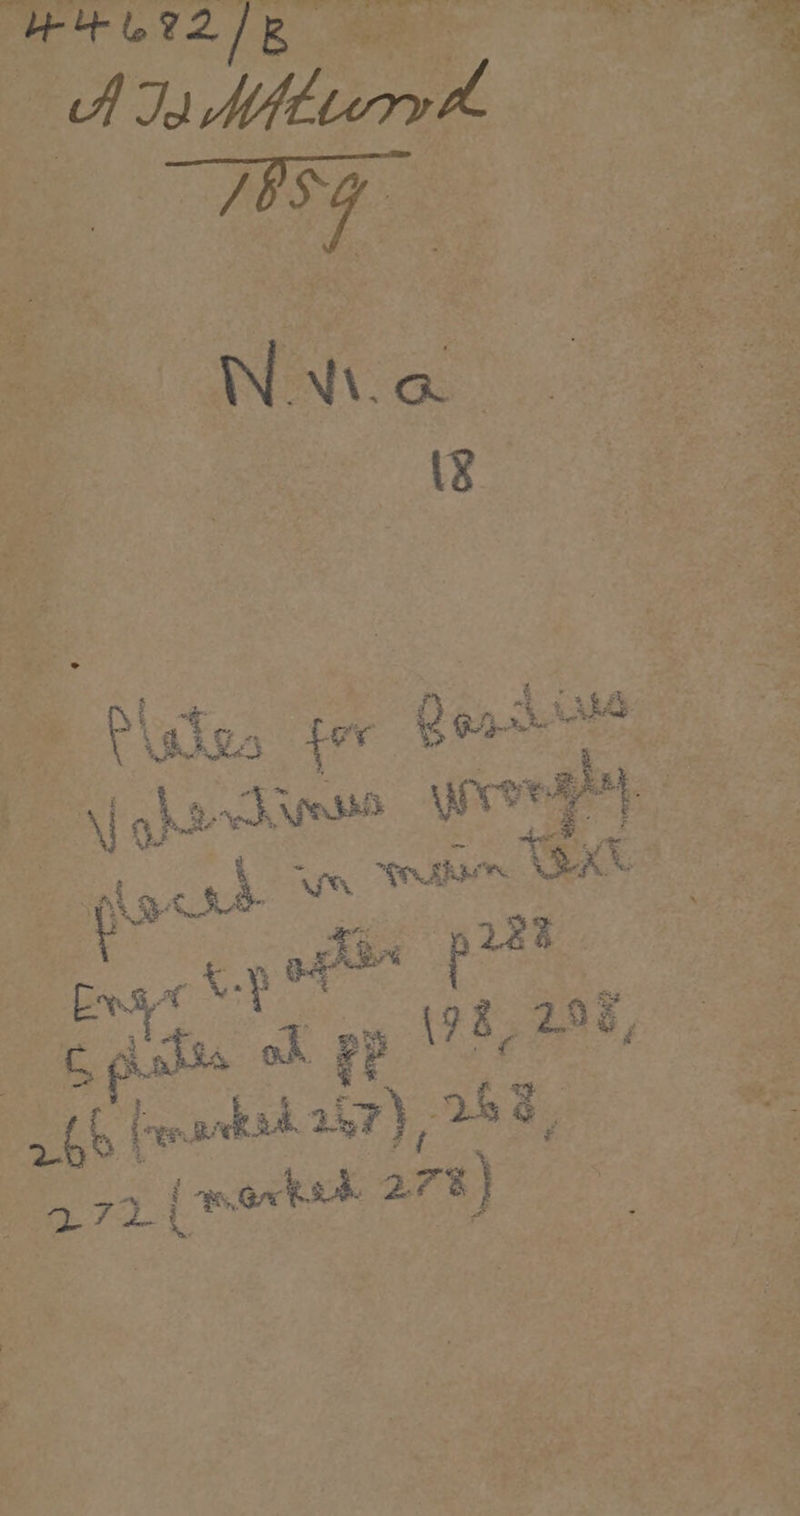 44682/B
1859
N. VI. a
18
Plates for Basilius
Valentinus wrongly
placed in main text
Engr t.p after p288
5 plates at pp 198, 208,
266 (marked 267), 268,
272 (marked 278)